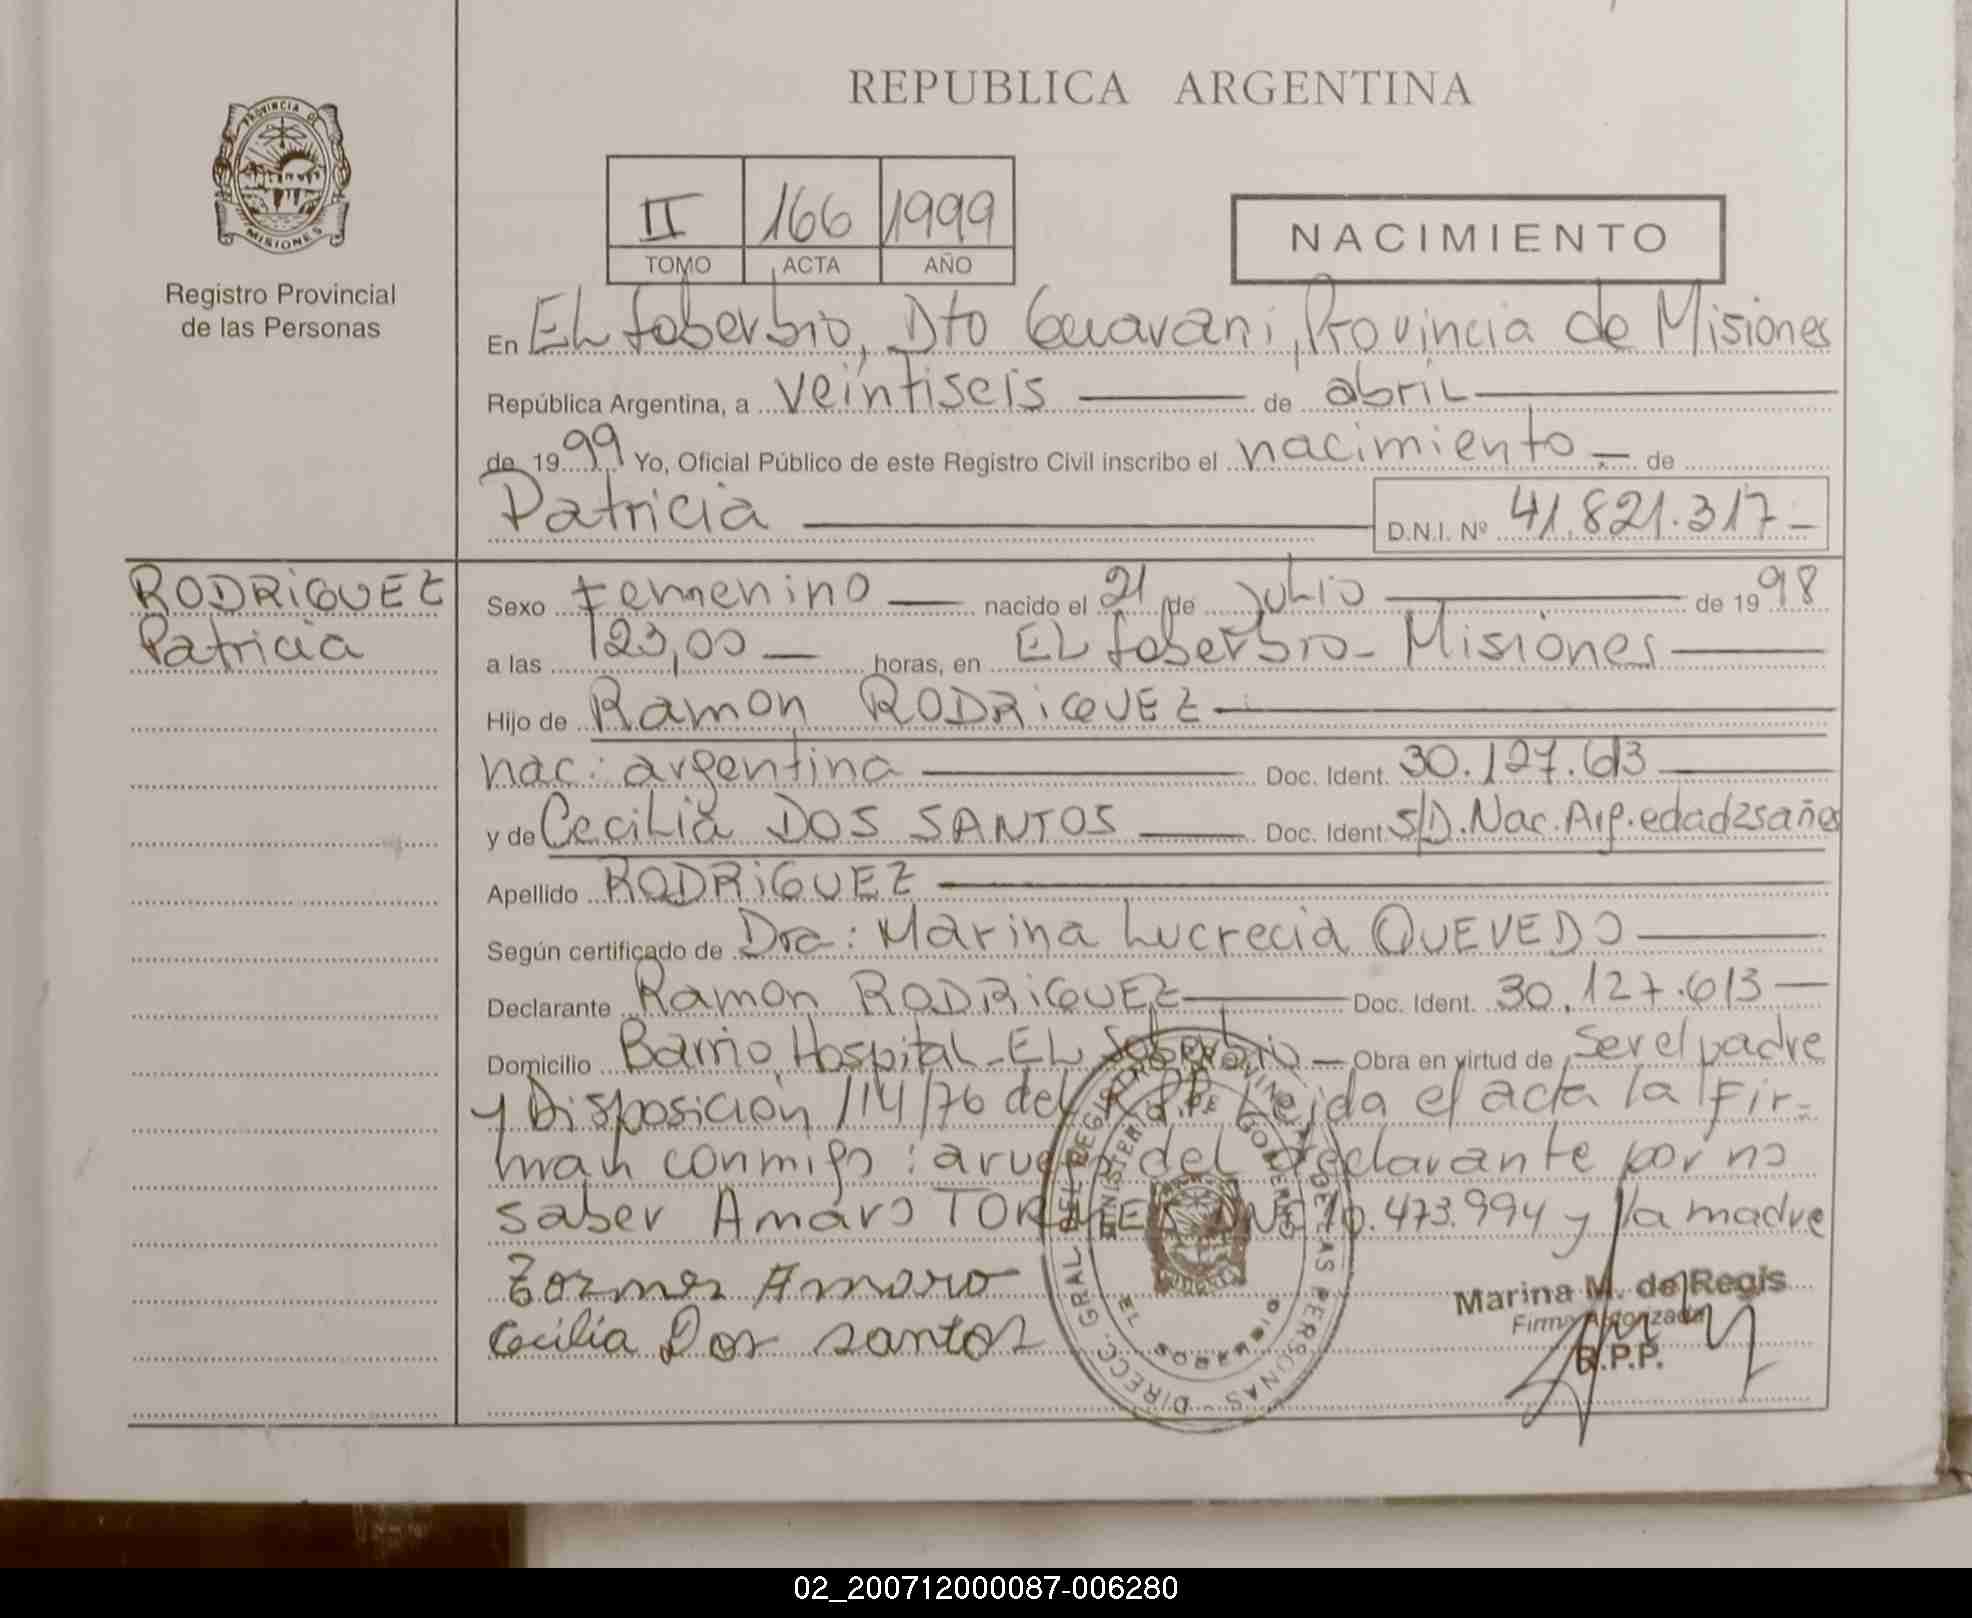 REPUBLICA ARGENTINA
PROVINCIA DE
MISIONES
Registro Provincial
de las Personas
II 166 1999
TOMO ACTA AÑO
NACIMIENTO
En EL Soberbio, Dto Guarani, Provincia de Misiones
República Argentina, a veintiseis de abril
de 1999 Yo, Oficial Público de este Registro Civil inscribo el nacimiento - de
Patricia D.N.I. Nº 41.821.317-
RODRIGUEZ
Patricia
Sexo Femenino nacido el 21 de Julio de 1998
a las 23,00 horas, en EL Soberbio - Misiones
Hijo de Ramon RODRIGUEZ
nac: argentina Doc. Ident. 30.127.613
y de Cecilia DOS SANTOS Doc. Ident. S/D. Nac. Arg. edad 25 años
Apellido RODRIGUEZ
Según certificado de Dra: Marina Lucrecia QUEVEDO
Declarante Ramon RODRIGUEZ Doc. Ident. 30.127.613
Domicilio Barrio Hospital - EL Soberbio - Obra en virtud de ser el padre
y Disposición 114/76 del R.P.P. Leida el acta la fir=
man conmigo: a ruego del declarante por no
saber Amaro TORMES DNI 10.473.994 y la madre
Tormes Amaro
Cecilia Dos santos
DIRECC. GRAL DEL REGISTRO PROVINCIAL DE LAS PERSONAS
MINISTERIO DE GOBIERNO
EL SOBERBIO
Marina M. de Regis
Firma Autorizada
R.P.P.
02_200712000087-006280